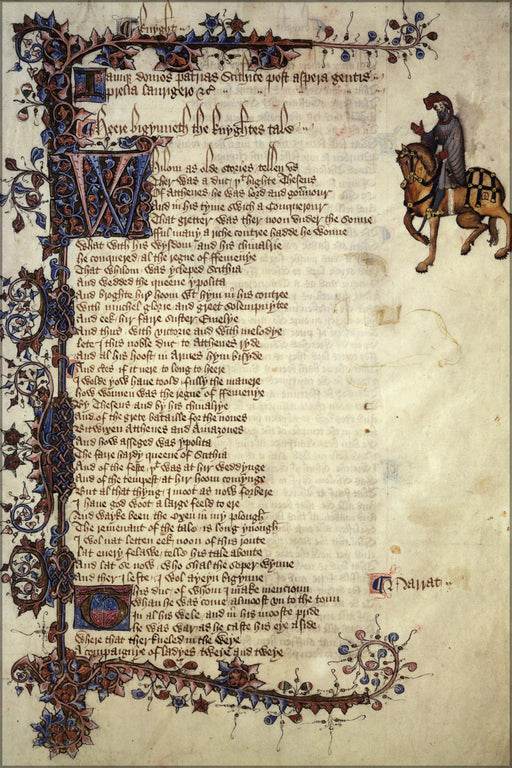 Knyght
Iamque domos patrias Scithice post aspera gentis
prelia laurigero &c
Heere bigynneth the knyghtes tale
Whilom as olde stories tellen us
Ther was a duc þt highte Theseus
Of Atthenes he was lord and gouernour
And in his tyme swich a Conquerour
That gretter was ther noon under the sonne
fful many a riche contree hadde he wonne
What with his wysdom and his chiualrie
He conquered al the regne of ffemenye
That whilom was ycleped Scithia
And wedded the queene ypolita
And broghte hir hoom wt hym in his contree
With muchel glorie and greet solempnytee
And eek hir faire suster Emelye
And thus with victorie and with melodye
Lete I this noble duc to Atthenes ryde
And al his hoost in Armes hym bisyde
And certes if it nere to long to heere
I wolde yow haue toold fully the manere
How wonnen was the regne of ffemenye
By Theseus and by his chiualrye
And of the grete bataille for the nones
Bitwixen Atthenes and Amazones
And how asseged was ypolita
The faire hardy queene of Scithia
And of the feste þt was at hir weddynge
And of the tempest at hir hoom comynge
But al that thyng I moot as now forbere
I haue god woot a large feeld to ere
And wayke been the oxen in my plough
The remenant of the tale is long ynough
I wol nat letten eek noon of this route
Lat euery felawe telle his tale aboute
And lat se now who shal the soper wynne
And ther I lefte I wol ayeyn bigynne
Narrat
This duc of whom I make mencioun
Whan he was come almoost un to the toun
In al his wele and in his mooste pride
He was war as he caste his eye aside
Where that ther kneled in the weye
A compaignye of ladyes tweye and tweye